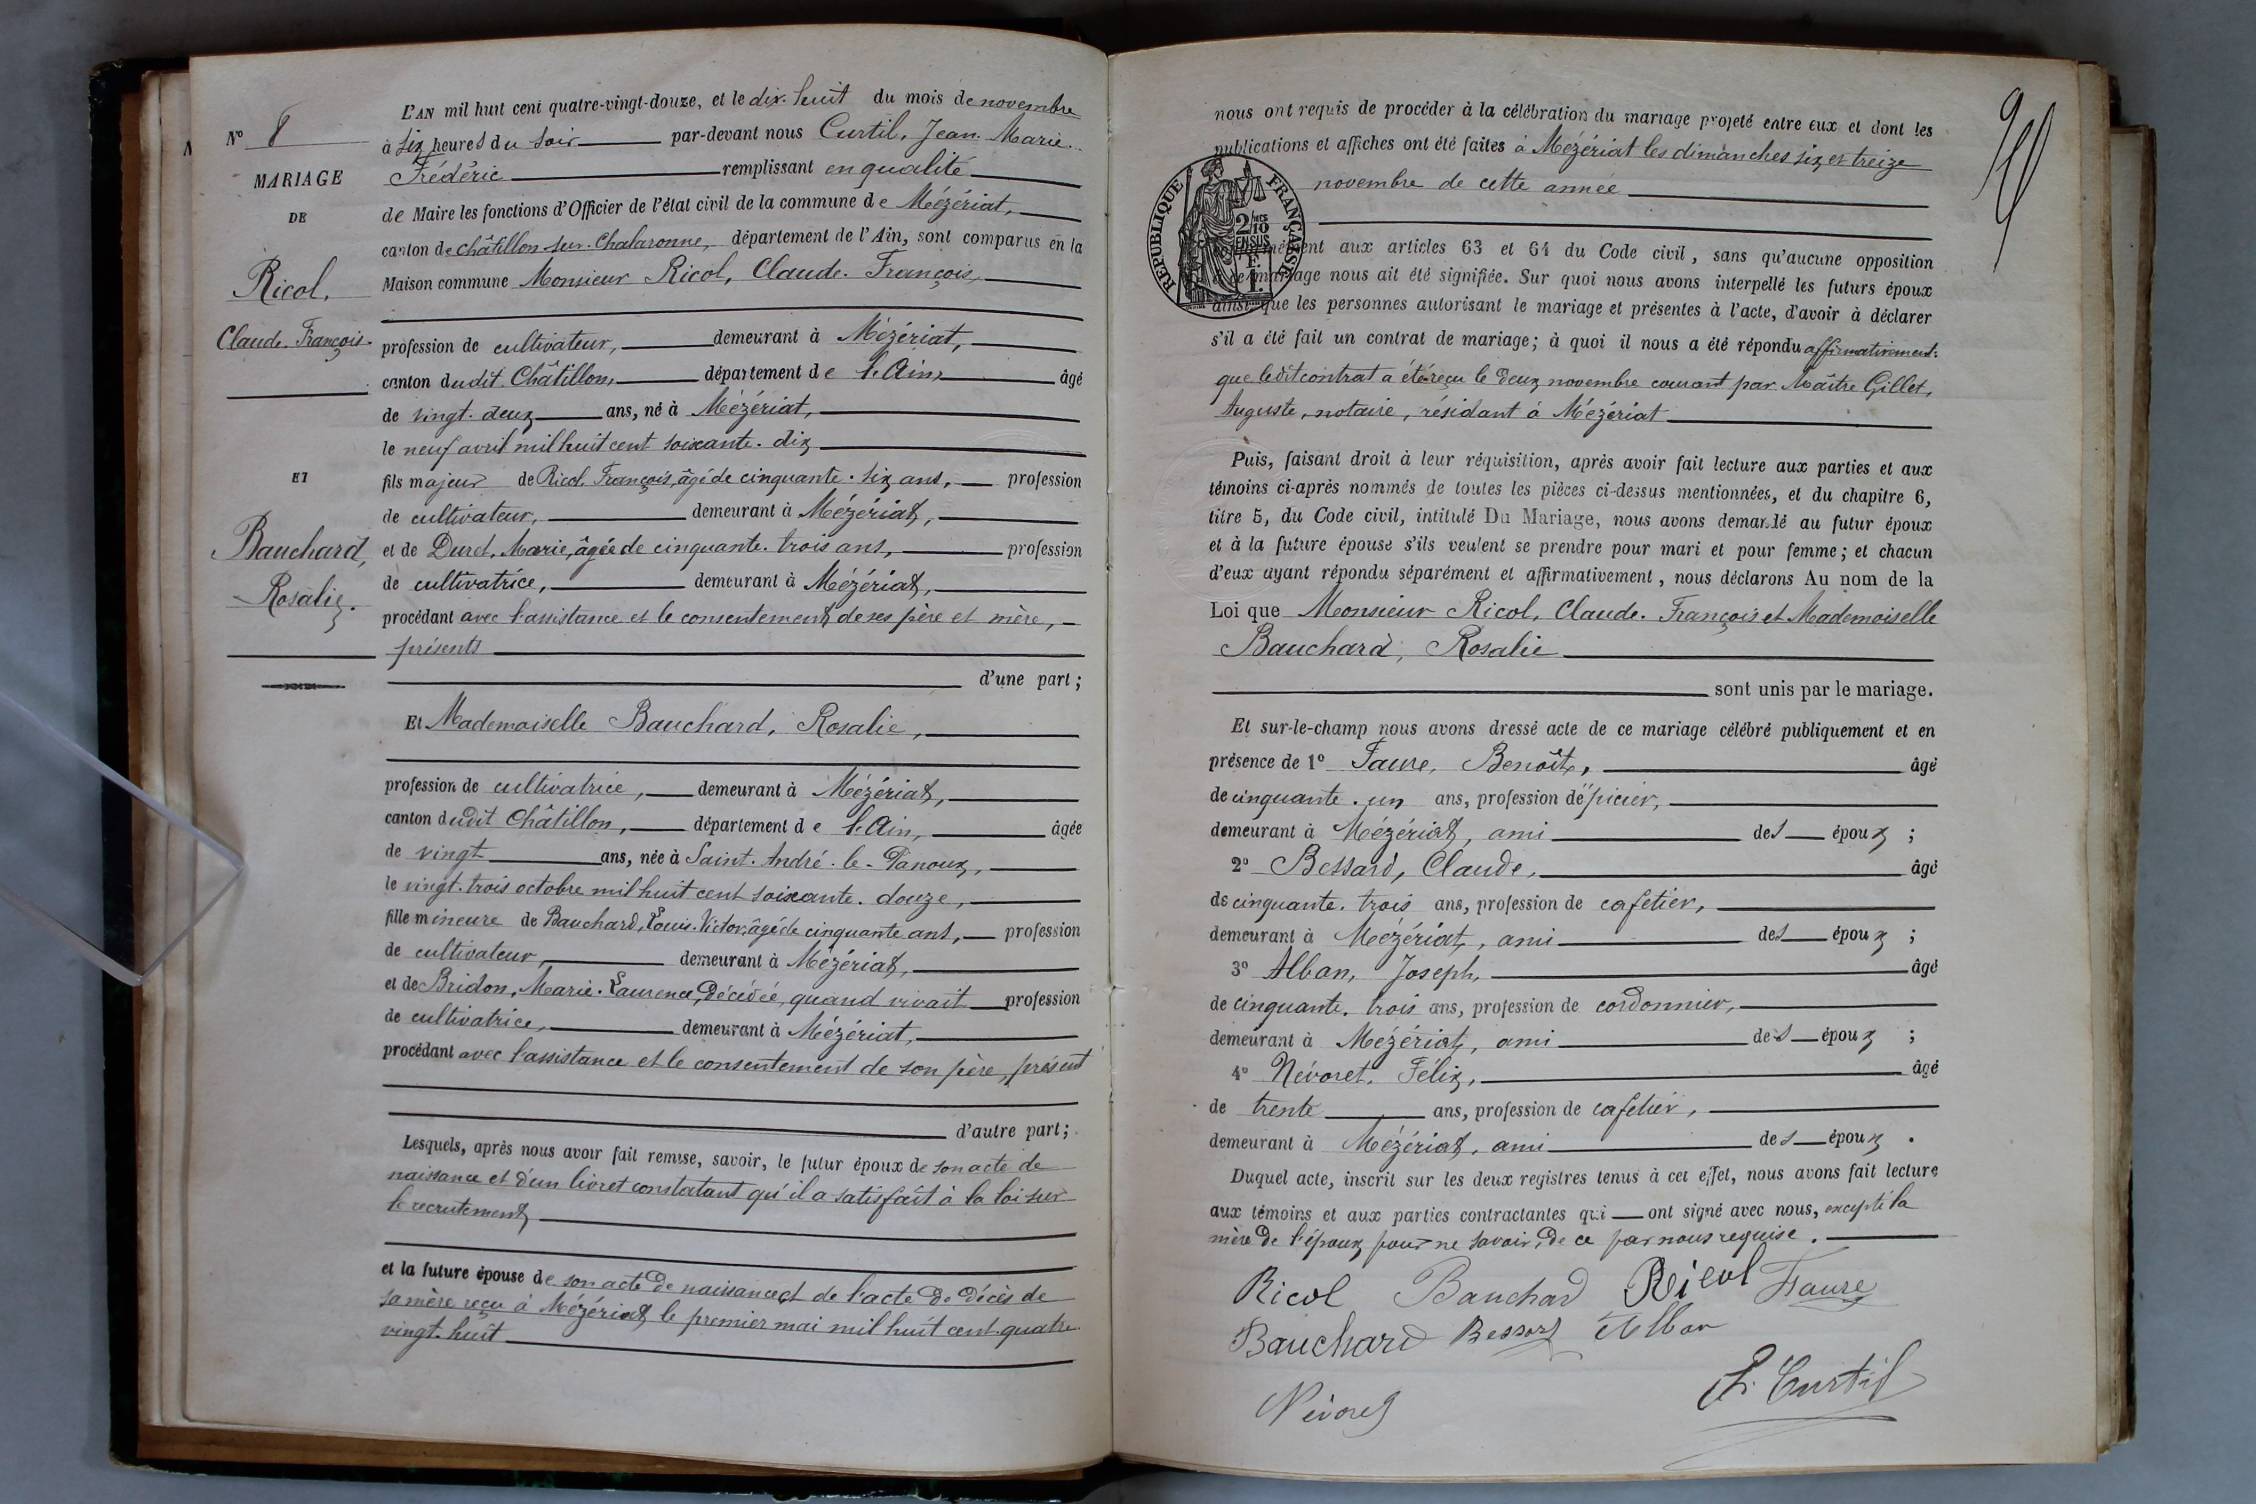 N° 8
MARIAGE
DE
Ricol,
Claude-François
ET
Bauchard,
Rosalie.
L'AN mil huit cent quatre-vingt-douze, et le dix-huit du mois de novembre
à six heures du soir par-devant nous Curtil, Jean-Marie-
Frédéric remplissant en qualité
de Maire les fonctions d'Officier de l'état civil de la commune de Mézériat,
canton de Châtillon-sur-Chalaronne, département de l'Ain, sont comparus en la
Maison commune Monsieur Ricol, Claude-François,
profession de cultivateur, demeurant à Mézériat,
canton dudit Châtillon, département de l'Ain, âgé
de vingt-deux ans, né à Mézériat,
le neuf avril mil huit cent soixante-dix
fils majeur de Ricol, François, âgé de cinquante-six ans, profession
de cultivateur, demeurant à Mézériat,
et de Duret, Marie, âgée de cinquante-trois ans, profession
de cultivatrice, demeurant à Mézériat,
procédant avec l'assistance et le consentement de ses père et mère,
présents
d'une part;
Et Mademoiselle Bauchard, Rosalie,
profession de cultivatrice, demeurant à Mézériat,
canton dudit Châtillon, département de l'Ain, âgée
de vingt ans, née à Saint-André-le-Panoux,
le vingt-trois octobre mil huit cent soixante-douze,
fille mineure de Bauchard, Louis-Victor, âgé de cinquante ans, profession
de cultivateur, demeurant à Mézériat,
et de Bridon, Marie-Laurence, décédée, quand vivait profession
de cultivatrice, demeurant à Mézériat,
procédant avec l'assistance et le consentement de son père, présent
d'autre part;
Lesquels, après nous avoir fait remise, savoir, le futur époux de son acte de
naissance et d'un livret constatant qu'il a satisfait à la loi sur
le recrutement
et la future épouse de son acte de naissance et de l'acte de décès de
sa mère reçu à Mézériat, le premier mai mil huit cent quatre-
vingt-huit
nous ont requis de procéder à la célébration du mariage projeté entre eux et dont les
publications et affiches ont été faites à Mézériat les dimanches six et treize
novembre de cette année
RÉPUBLIQUE FRANÇAISE
2/10 EN SUS
aux articles 63 et 64 du Code civil, sans qu'aucune opposition
mariage nous ait été signifiée. Sur quoi nous avons interpellé les futurs époux
ainsi que les personnes autorisant le mariage et présentes à l'acte, d'avoir à déclarer
s'il a été fait un contrat de mariage; à quoi il nous a été répondu affirmativement:
que ledit contrat a été reçu le deux novembre courant par Maître Gillet,
Auguste, notaire, résidant à Mézériat
Puis, faisant droit à leur réquisition, après avoir fait lecture aux parties et aux
témoins ci-après nommés de toutes les pièces ci-dessus mentionnées, et du chapitre 6,
titre 5, du Code civil, intitulé Du Mariage, nous avons demandé au futur époux
et à la future épouse s'ils veulent se prendre pour mari et pour femme; et chacun
d'eux ayant répondu séparément et affirmativement, nous déclarons Au nom de la
Loi que Monsieur Ricol, Claude-François et Mademoiselle
Bauchard, Rosalie
sont unis par le mariage.
Et sur-le-champ nous avons dressé acte de ce mariage célébré publiquement et en
présence de 1° Faure, Benoît, âgé
de cinquante-un ans, profession d'épicier,
demeurant à Mézériat, ami des époux;
2° Bessard, Claude, âgé
de cinquante-trois ans, profession de cafetier,
demeurant à Mézériat, ami des époux;
3° Alban, Joseph, âgé
de cinquante-trois ans, profession de cordonnier,
demeurant à Mézériat, ami des époux;
4° Névoret, Félix, âgé
de trente ans, profession de cafetier,
demeurant à Mézériat, ami des époux.
Duquel acte, inscrit sur les deux registres tenus à cet effet, nous avons fait lecture
aux témoins et aux parties contractantes qui ont signé avec nous, excepté la
mère de l'époux, pour ne savoir, de ce par nous requise.
Ricol Bauchard Ricol Faure
Bauchard Bessard Alban
Névoret
Curtil